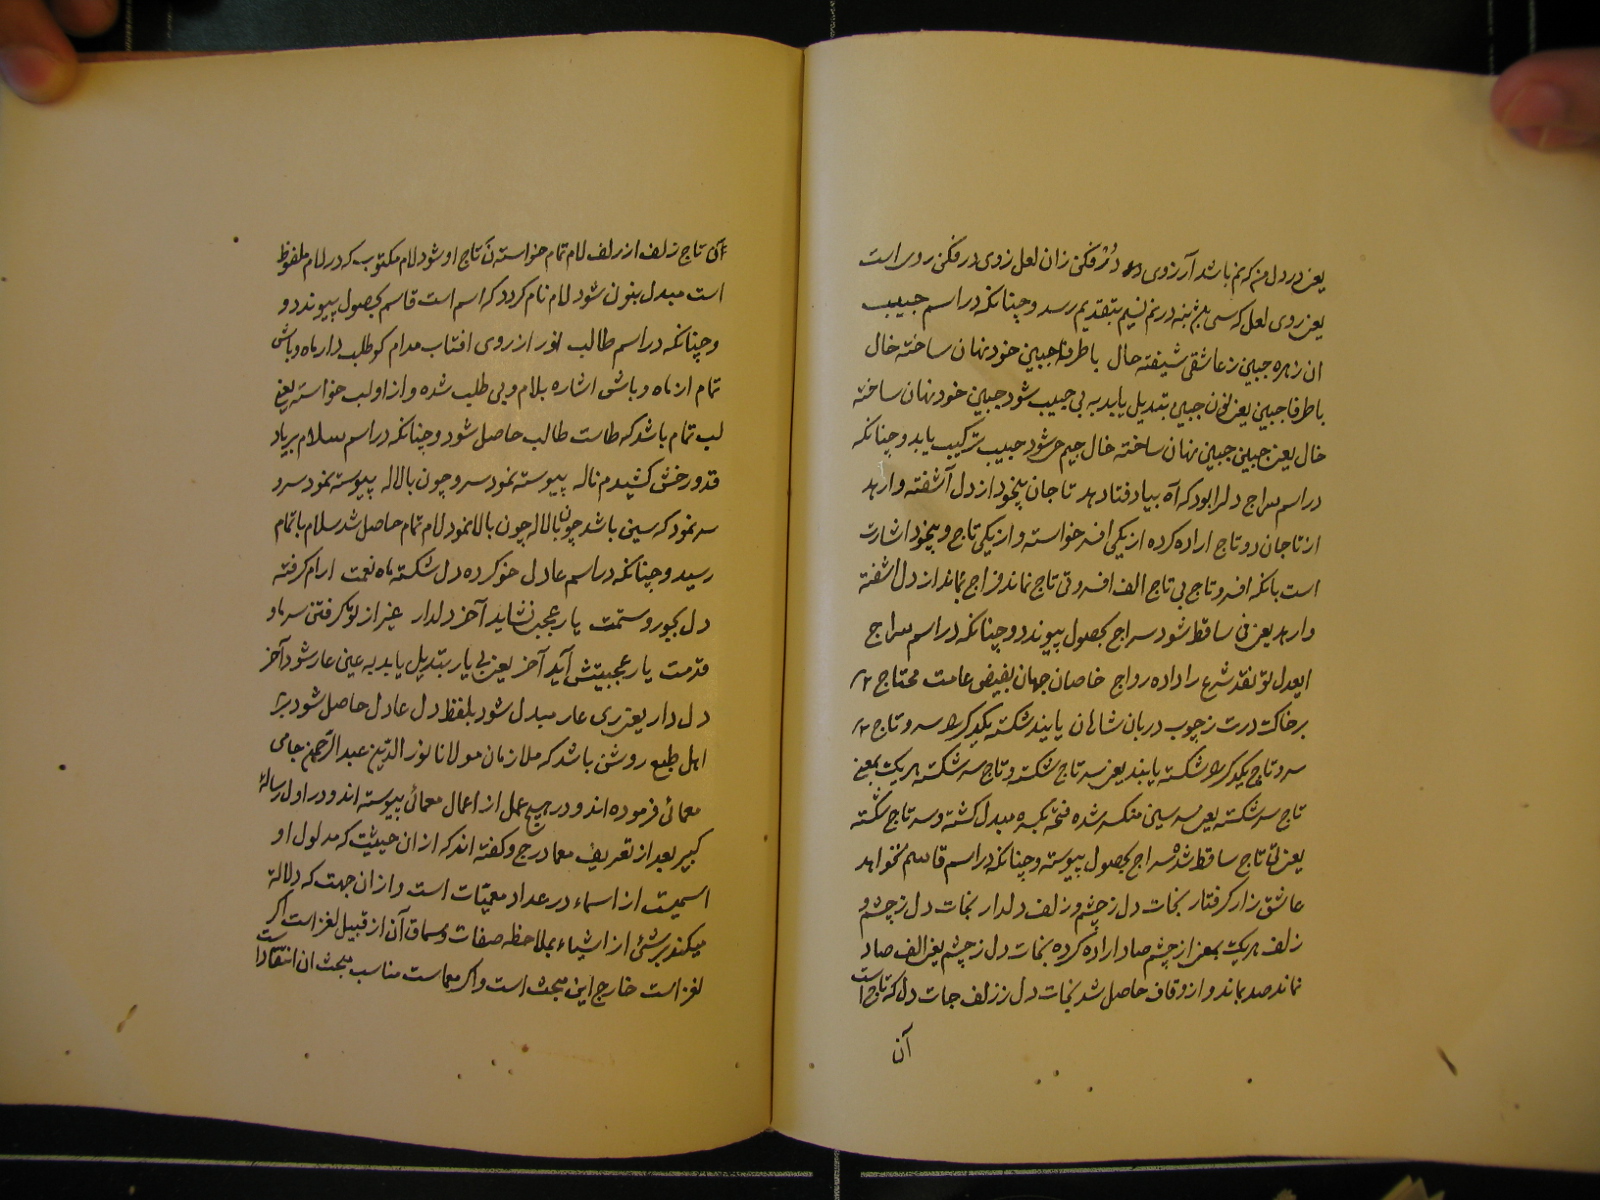 یعنی در دل من که نم باشد آرزوی در فکن زان لعل زوی در فکن روی است
یعنی روی لعل که سی بدر نم نسیم بتقدیم رسد و چنانکه در اسم حبیب
ان زهره جبین ز عاشق شیفته حال با طرفا جبین خود نهان ساخته خال
با طرفا جبین یعنی نون جبین بتبدیل یابد به بی جبیب شود جبین خود نهان ساخته
خال یعنی جبین جبین نهان ساخته خال جیم حی شود حبیب ترکیب یابد و چنانکه
در اسم سراج دلرا بود که آه بیاد فتاد هد تا جان بیخود از دل آشفته وارهد
از تا جان دو تاج اراده کرده از یکی افسر خواسته و از یکی تاج و بیخود اشارت
است بانکه افسر و تاج بی تاج الف افسر و تی تاج نماند فراج بماند از دل اشفته
وارهد یعنی فی ساقط شود سراج بحصول پیوندد و چنانکه در اسم سراج
ایعدل تو نقد شرع را داده رواج خاصان جهان بفیض عامت محتاج
بر خاک درت ز چوب دربان شاهان یابند شکست یکدگر را سر و تاج
سر و تاج یکدگر را شکسته یابند یعنی سر تاج شکسته و تاج سر شکسته هر یک بمعنی
تاج سر شکسته یعنی سر سین منکسر شده فتحه بکسره مبدل کشته و سر تاج شکسته
یعنی تی تاج ساقط شده سراج بحصول پیوسته و چنانکه در اسم قاسم نخواهد
عاشق زار گرفتار نجات دل ز چشم و زلف دلدار نجات دل ز چشم و
زلف هر یک بمعنی از چشم صاد اراده کرده نجات دل ز چشم یعنی الف صاد
نماند صد بماند و ازو قاف حاصل شد نجات دل ز زلف جات دل که تاج است
آن
آن تاج زلف از زلف لام تمام خواسته که تاج او شود لام مکتوب که در لام ملفوظ
است مبدل بنون شود لام نام کردد که اسم است قاسم بحصول پیوندد و
و چنانکه در اسم طالب نور از روی افتاب مدام کو طلب دار ماه و باش
تمام از ماه و باش اشاره بلام و بی طلب شده و از او لب خواسته یعنی
لب تمام باشد که طاست طالب حاصل شود و چنانکه در اسم سلام بریاد
قد و رخش کشیدم ناله پیوسته نمود سرو چون بالاله پیوسته نمود سرو
سر نمود که سین باشد چون بالاله چون بالا نمود لام تمام حاصل شد سلام باتمام
رسید و چنانکه در اسم عادل خو کرده دل شکسته ماه نعمت ارام کرفته
دل بجور و ستمت یار عجب نشاید آخر دلدار غیر از تو کرفتن سر ماه و
قدمت یار عجبیتش آید آخر یعنی بی یار بتبدیل یابد به عین عار شود آخر
دل دار یعنی ری عار مبدل شود بلفظ دل عادل حاصل شود بر
اهل طبع روشن باشد که ملازمان مولانا نور الدین عبد الرحمن جامی
معمائی فرموده اند و در هیچ عمل از اعمال معمائی پیوسته اند و در اول رساله
کبیر بعد از تعریف معما درج و کفته اند که از ان حیثیت که مدلول او
اسمیست از اسماء در عداد معمیات است و از ان جهت که دلالة
میکند بر شئ از اشیاء بملاحظه صفات و سمات آن از قبیل لغز است اگر
لغز است خارج این مبحث است و اگر معماست مناسب مبحث ان انتقاد است